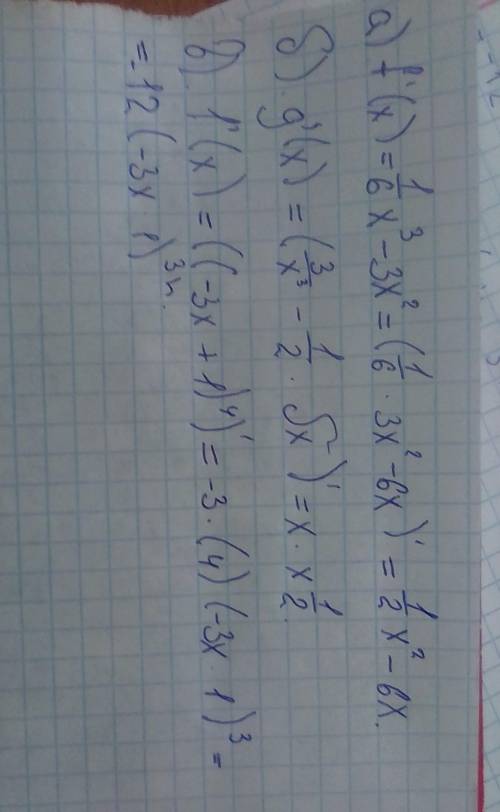 а) f'(x) = 1/6 x³ - 3x² = (1/6 · 3x² - 6x)' = 1/2 x² - 6x.
б) g'(x) = (3/x³ - 1/2 · √x)' = x · x 1/2.
в) f'(x) = ((-3x + 1)⁴)' = -3 · (4) (-3x · 1)³ =
= -12 (-3x · 1)³